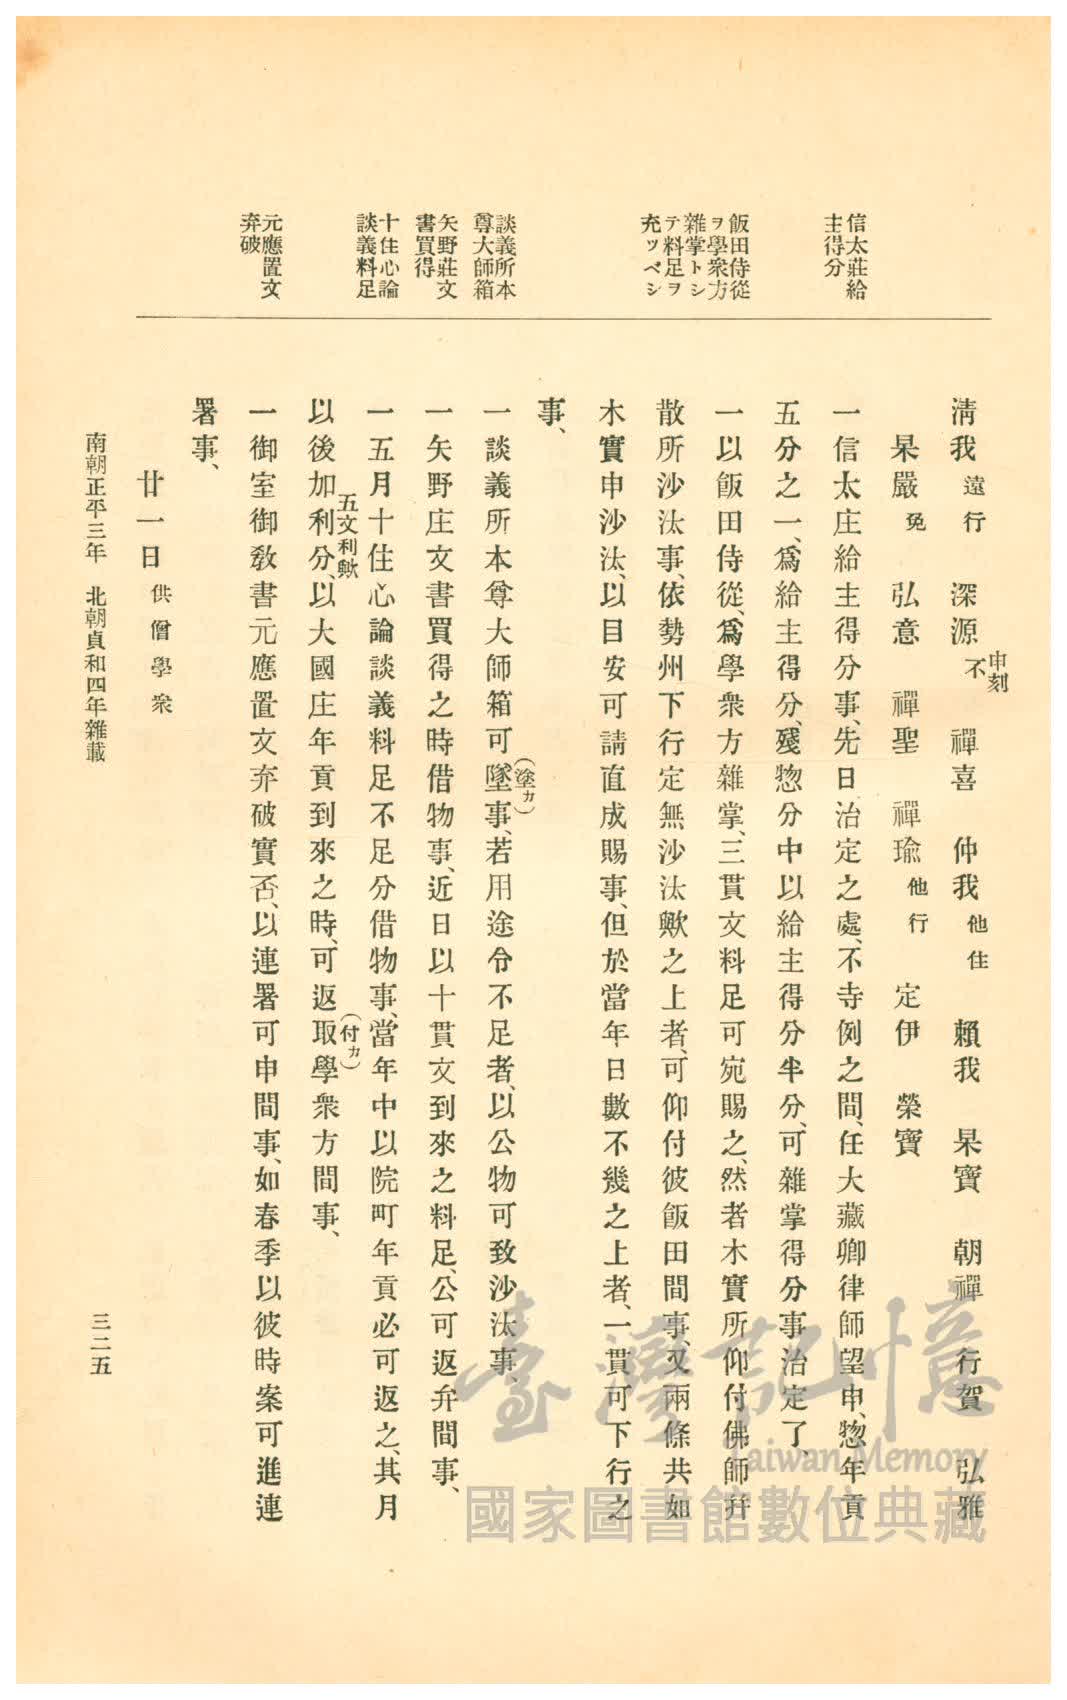 信太莊給
主得分
飯田侍從
ヲ學衆方
雜掌トシ
テ料足ヲ
充ツベシ
談義所本
尊大師箱
矢野莊文
書買得
十住心論
談義料足
元應置文
弃破
淸我遠行　深源不申刻　禪喜　仲我他住　賴我　杲寶　朝禪　行賀　弘雅
杲嚴免　弘意　禪聖　禪瑜他行　定伊　榮寶
一信太庄給主得分事、先日治定之處、不寺例之間、任大藏卿律師望申、惣年貢
五分之一、爲給主得分、殘惣分中以給主得分半分、可雜掌得分事治定了、
一以飯田侍從、爲學衆方雜掌、三貫文料足可宛賜之、然者木實所仰付佛師幷
散所沙汰事、依勢州下行定無沙汰歟之上者、可仰付彼飯田間事、又兩條共如
木實申沙汰、以目安可請直成賜事、但於當年日數不幾之上者、一貫可下行之
事、
一談義所本尊大師箱可墜(塗カ)事、若用途令不足者、以公物可致沙汰事、
一矢野庄文書買得之時借物事、近日以十貫文到來之料足、公可返弁間事、
一五月十住心論談義料足不足分借物事、當年中以院町年貢必可返之、其月
以後加利分、五文利歟以大國庄年貢到來之時、可返取(付カ)學衆方間事、
一御室御敎書元應置文弃破實否、以連署可申間事、如春季以彼時案可進連
署事、
廿一日供僧學衆
南朝正平三年　北朝貞和四年雜載
三二五
臺灣記憶
Taiwan Memory
國家圖書館數位典藏